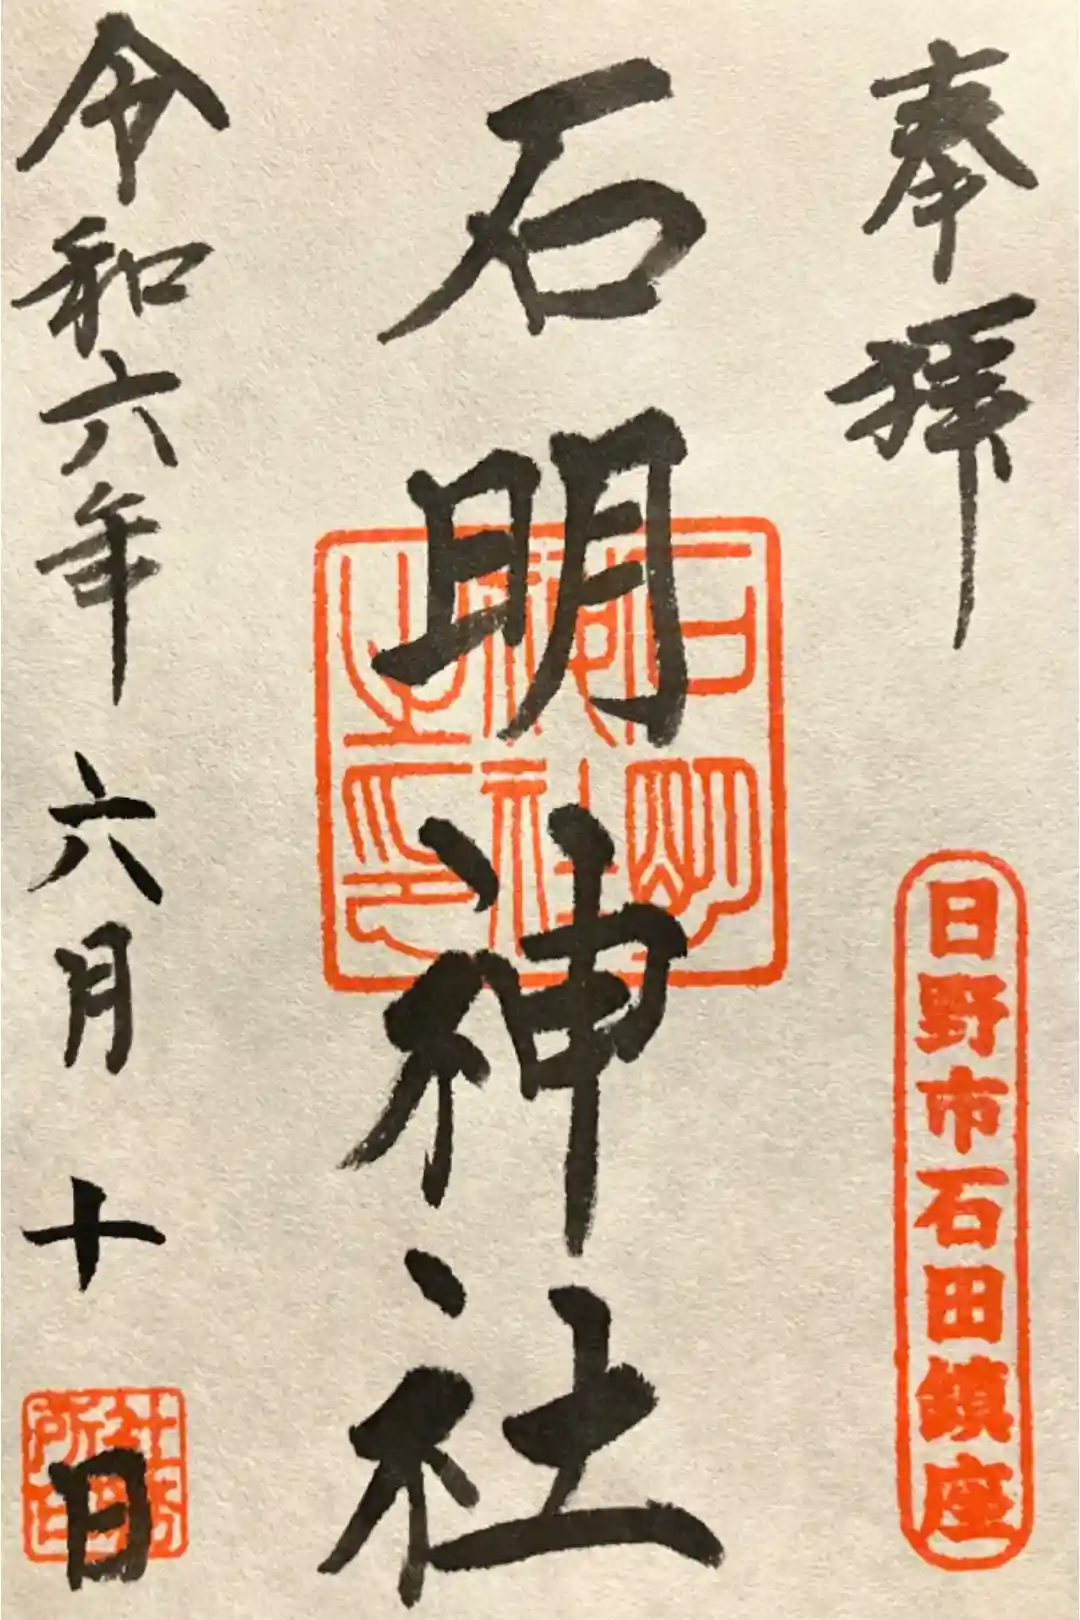 奉拝
日野市石田鎮座
石明神社
石明神社之印
令和六年六月十日